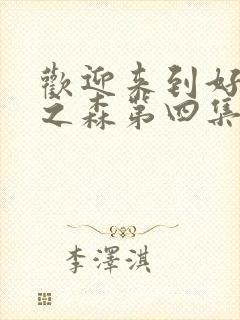 歡迎来到好
之森第四集
李澤淇